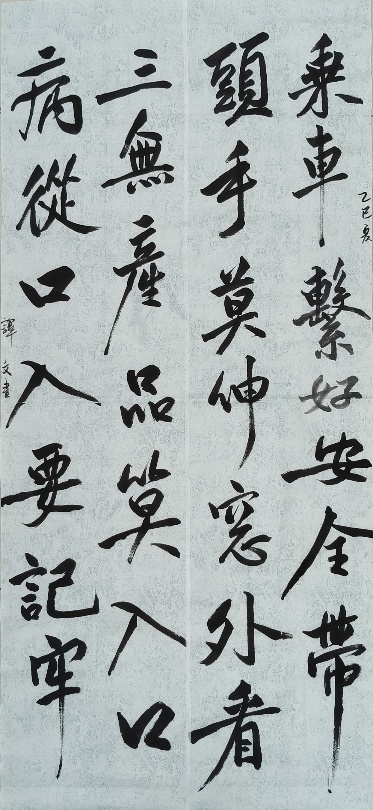 乘車繫好安全帶
乙巳夏
頭手莫伸窓外看
三無產品莫入口
病從口入要記牢
譚文書